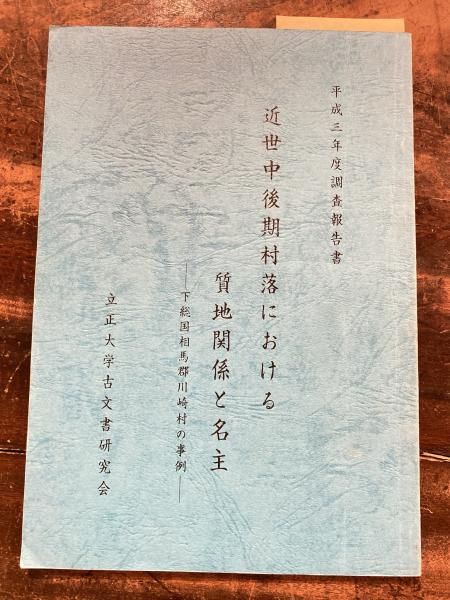 平成三年度調査報告書
近世中後期村落における
質地関係と名主
―下総国相馬郡川崎村の事例―
立正大学古文書研究会